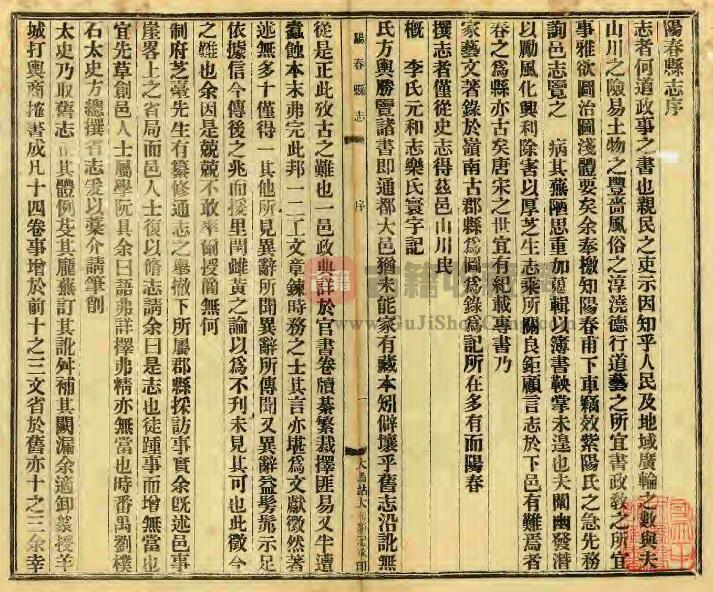 陽春縣志序
志者何道政事之書也親民之吏示因知乎人民及地域廣輪之數與夫
山川之險易土物之豐嗇風俗之淳澆德行道藝之所宜書政教之所宜
事雅欲圖治圖淺體要矣余奉檄知陽春甫下車竊效紫陽氏之急先務
詢邑志覽之 病其蕪陋思重加葺輯以簿書鞅掌未遑也夫闡幽發潛
以勵風化興利除害以厚芝生志乘所關良鉅顧言志於下邑有難焉者
春之為縣亦古矣唐宋之世宜有紀載專書乃
家藝文著錄於嶺南古郡縣為圖為錄為記所在多有而陽春
撰志者僅從史志得茲邑山川民
概 李氏元和志樂氏寰宇記
氏方輿勝覽諸書即通都大邑猶未能家有藏本矧僻壤乎舊志沿訛無
從是正此攷古之難也一邑政典詳於官書卷牘綦繁裁擇匪易又半遭
蠹蝕本末弗完此邦一二工文章鍊時務之士其言亦堪為文獻徵然著
述無多十僅得一其他所見異辭所聞異辭所傳聞又異辭益髣髴示足
依據信今傳後之兆而援里閈雌黃之論以為不刊未見其可也此徵今
之難也余因是兢兢不敢率爾授簡無何
制府芝臺先生有纂修通志之舉檄下所屬郡縣採訪事實余既述邑事
崖畧上之省局而邑人士復以脩志請余曰是志也徒踵事而增無當也
宜先草創邑人士屬學阮具余曰語弗詳擇弗精亦無當也時番禺劉樸
石太史方總撰省志爰以藁介請筆削
太史乃取舊志 其體例芟其龐蕪訂其訛舛補其闕漏余適卸篆授羊
城打輿商搉書成凡十四卷事增於前十之三文省於舊亦十之三余幸
陽春縣志
序
一
GuJiShou.Com